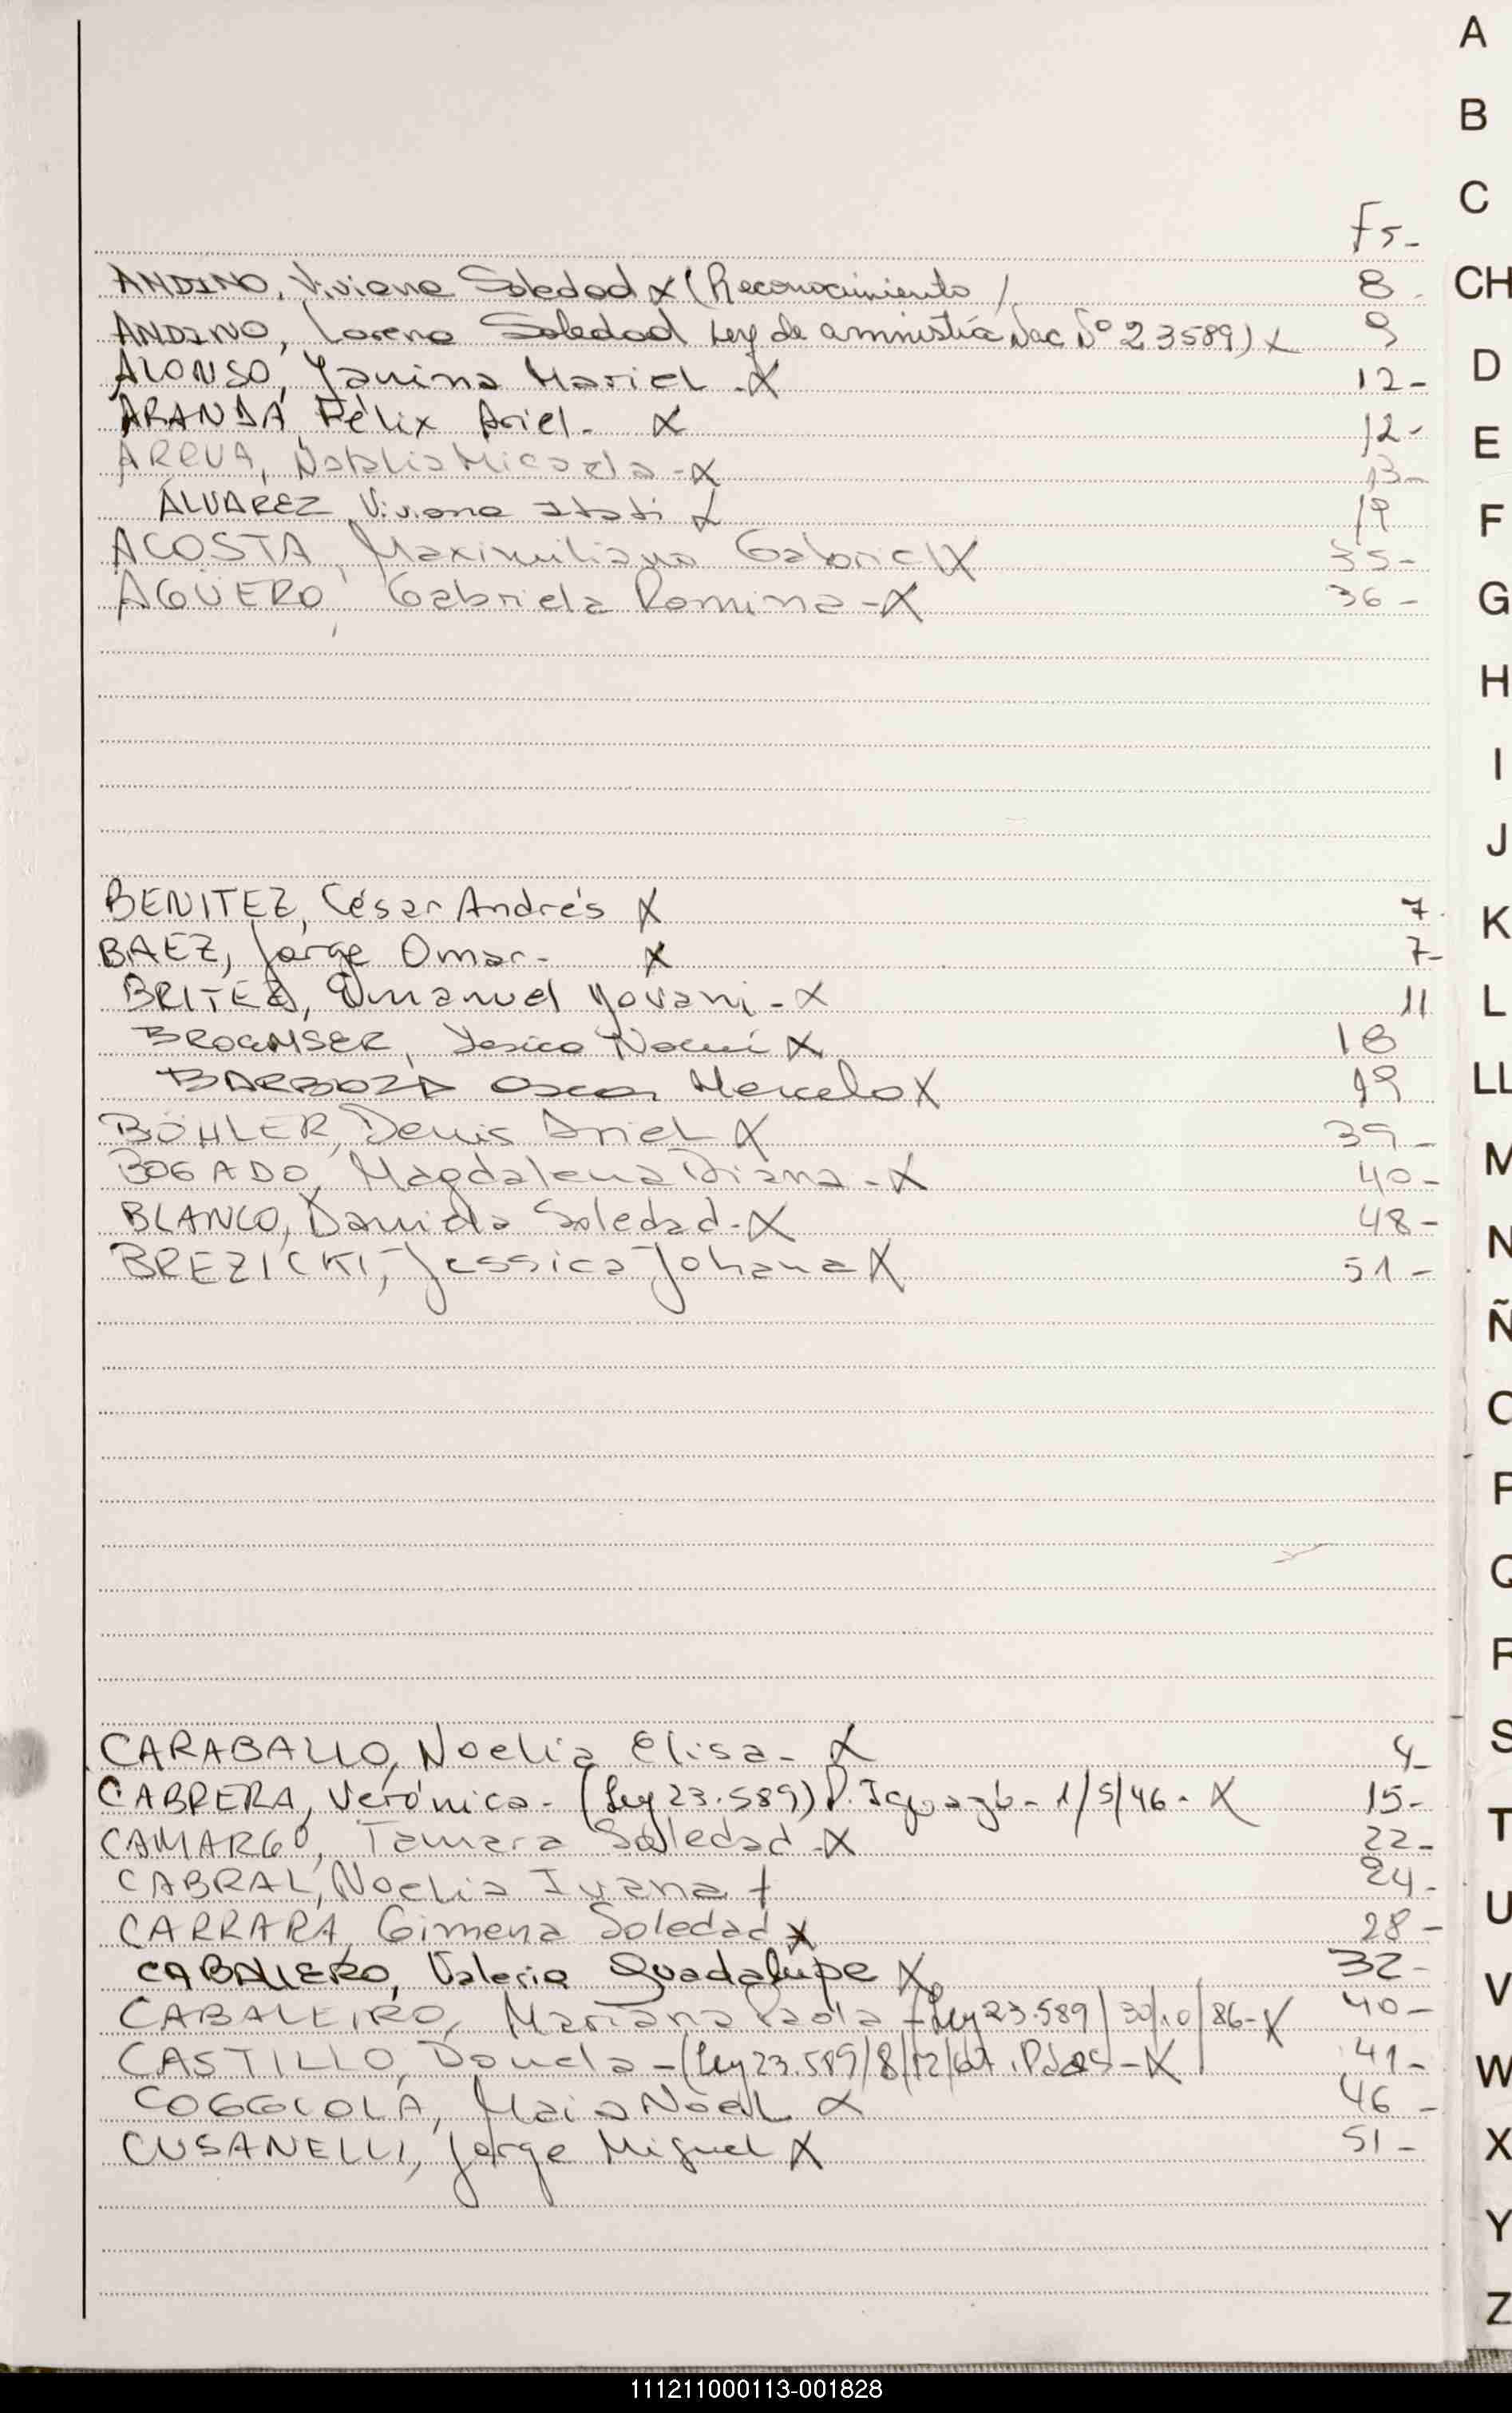 A
B
C
Fs-
ANDINO, Viviana Soledad x (Reconocimiento / 8 - CH
ANDINO, Lorena Soledad Ley de amnistía Nac Nº 23589) x 9
ALONSO, Yanina Mariel - X 12- D
ARANDA, Félix Ariel - X 12- E
ARRUA, Natalia Micaela - X 13-
ÁLVAREZ Viviana Itatí X 19 F
ACOSTA, Maximiliano Gabriel X 35-
AGÜERO, Gabriela Romina - X 36- G
H
I
J
BENITEZ, César Andrés X 7- K
BAEZ, Jorge Omar - X 7-
BRITEZ, Emanuel Yovani - X 11 L
Yesica Noemí X 18
BARBOZA Oscar Marcelo X 19 LL
BÖHLER, Denis Ariel X 39-
BOGADO, Magdalena Diana - X 40- M
BLANCO, Daniela Soledad - X 48- N
BREZICKI, Jessica Johana X 51-
Ñ
O
P
Q
R
S
CARABALLO, Noelia Elisa - X 4-
CABRERA, Verónica - (Ley 23.589) P. Iguazú - 1/5/46 - X 15- T
CAMARGO, Tamara Soledad - X 22-
CABRAL, Noelia Ivana + 24-
CARRARA, Gimena Soledad x 28- U
CABALLERO, Valeria Guadalupe X 32-
CABALEIRO, Mariana Paola - Ley 23.589/30/10/86 - X 40- V
CASTILLO, - (Ley 23.589/8/12/67 - X 41- W
COGGIOLA, Noel X 46-
CUSANELLI, Jorge Miguel X 51- X
Y
Z
111211000113-001828